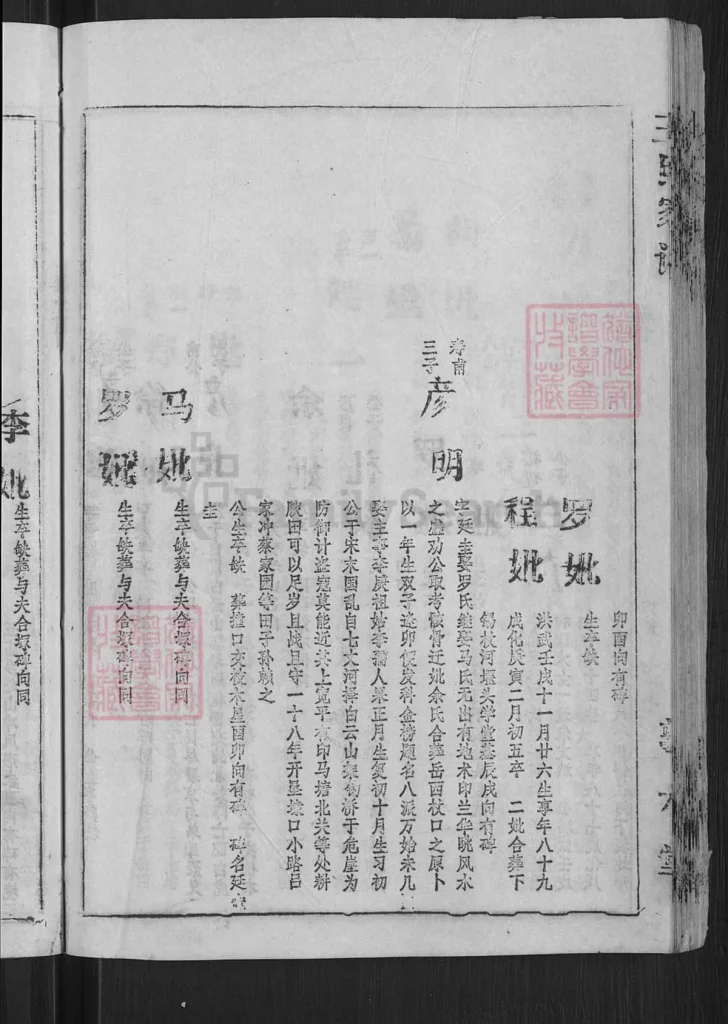 卯酉向有碑
罗妣
生卒缺
洪武壬戌十一月廿六生享年八十九
程妣
成化庚寅二月初五卒 二妣合葬下
锡杖河堰头学堂墓辰戌向有碑
寿南
三子
彦明
字廷圭娶罗氏继娶马氏无出有地术印兰华眺风水
之虚劝公取考骸骨迁妣余氏合葬岳西杖口之原卜
以一年生双子逵卯便发科金榜题名八派万始未几
娶主 李庚祖姑李孺人果正月生复初十月生习初
公于宋末国乱自七大河择白云山架 桥于危崖为
防御计盗寇莫能近其上宽平有印马塘北关等处耕
腴田可以足岁且战且守一十八年开垦 口小路吕
家冲蔡家园等田子孙赖之
公生卒缺 葬撞口交椅木星酉卯向有碑 碑名廷
圭
马妣
生卒缺葬与夫合塚碑向同
罗妣
生卒缺葬与夫合塚碑向同
李妣
生卒缺葬与夫合塚碑向同